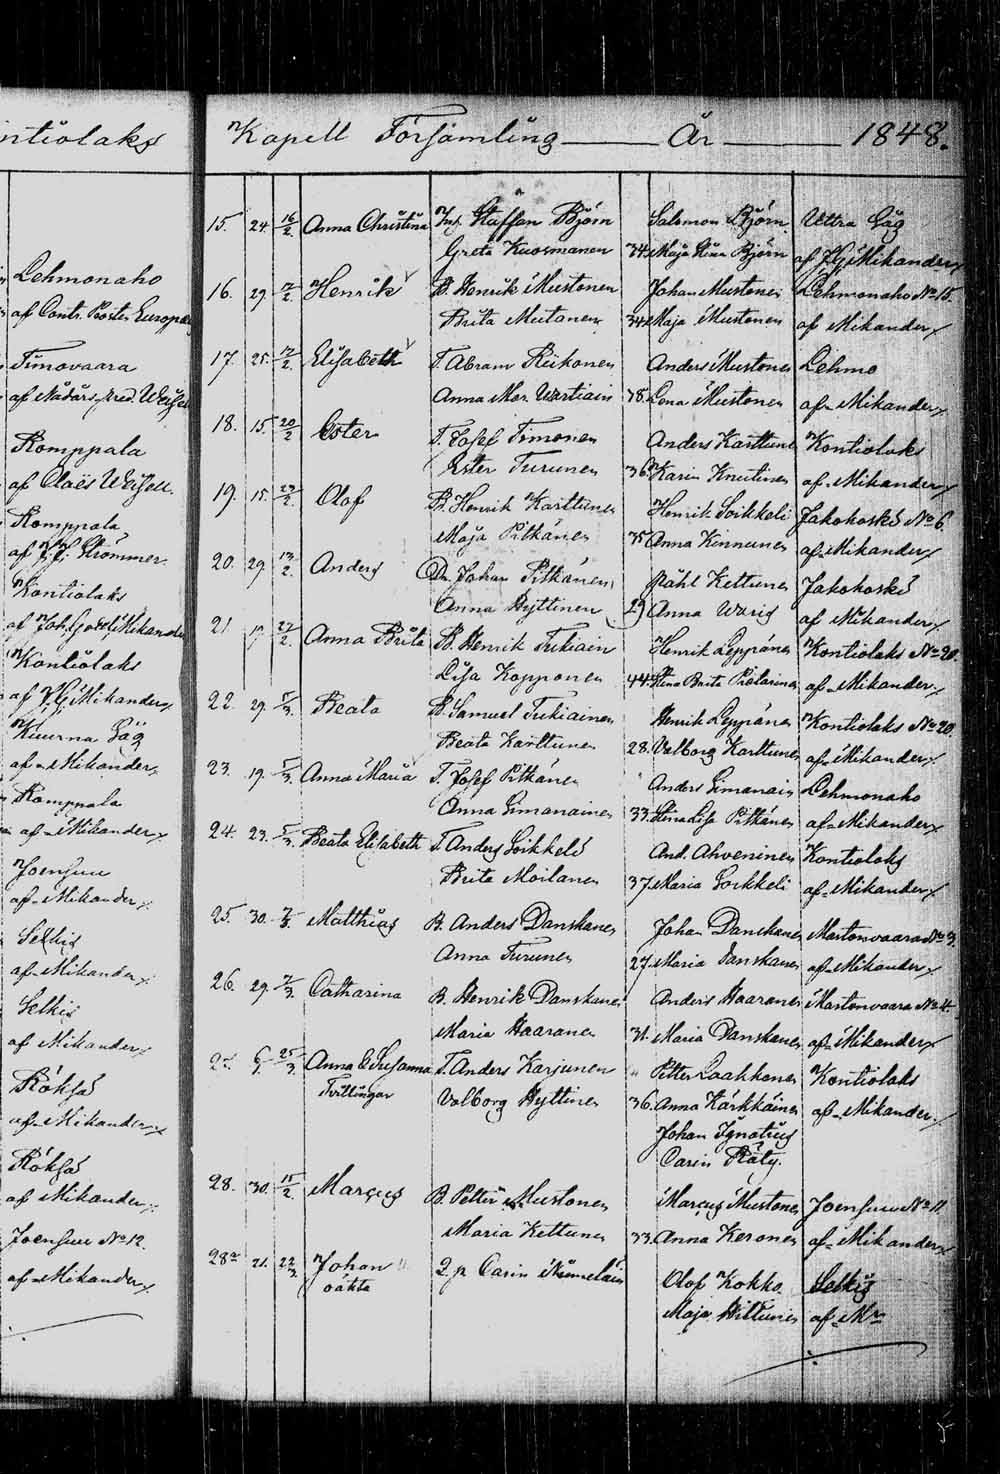 ntiolaks
Lehmonaho
af Contr. Proster Europæus
Timovaara
af Nådårs pred. Weisell
Romppala
af Claës Weisell.
Romppala
af J. F. Strömmer.
Kontiolaks
af Joh. Gottl. Mikander
Kontiolaks
af J. G. Mikander
Kuurna Såg
af Mikander
Romppala
af Mikander
Joensuu
af Mikander
Selkis
af Mikander
Selkis
af Mikander
Röksö
af Mikander
Röksö
af Mikander
Joensuu No 12.
af Mikander
Kapell Församling År 1848.
15. 24. 16/2. Anna Christina Staffan Björn Salomon Björn Uttra Såg
Greta Kuosmanen 34. Maja Stina Björn af J G Mikander
16. 29. /2. Henrik B. Henrik Mustonen Johan Mustonen Lehmonaho No 15.
Brita Meitanen 34. Maja Mustonen af Mikander
17. 25. /2. Elisabeth T. Abram Riikonen Anders Mustonen Lehmo
Anna Mar. Wartiain 38. Lena Mustonen af Mikander
18. 15. 20/2 Ester T. Josef Timonen Anders Karttunen Kontiolaks
Ester Turunen 36. Karin Knuutinen af Mikander
19. 15. 23/2. Olof B. Henrik Karttunen Henrik Soikkeli Jakokoski No 6.
Maja Pitkänen 35 Anna Kinnunen af Mikander
20. 29. 13/2. Anders Dr. Johan Pitkänen Påhl Kettunen Jakokoski
Anna Hyttinen 29 Anna Waris af Mikander
21. 17. 27/2. Anna Brita B. Henrik Tukiain Henrik Leppänen Kontiolaks No 20.
Lisa Kopponen 44. Stina Brita Pielarinen af Mikander
22. 29. 5/3. Beata B. Samuel Tukiainen Henrik Leppänen Kontiolaks No 20.
Beata Karttunen 28. Valborg Karttunen af Mikander
23. 19. 5/3. Anna Maria T. Josef Pitkänen Anders Simanain Lehmonaho
Anna Simanainen 33. Stina Lisa Pitkänen af Mikander
24. 23. 5/3. Beata Elisabeth T. Anders Soikkeli And. Ahveninen Kontiolaks
Brita Moilanen 37. Maria Soikkeli af Mikander
25. 30. 7/3. Matthias B. Anders Danskanen Johan Danskanen Martonvaara No 3.
Anna Turunen 27. Maria Danskanen af Mikander
26. 29. 7/3. Catharina B. Henrik Danskanen Anders Haaranen Martonvaara No 4.
Maria Haaranen 31. Maria Danskanen af Mikander
27. 25/3. Anna & Susanna T. Anders Karjunen Petter Laakkonen Kontiolaks
Tvillingar Valborg Hyttinen 36. Anna Kärkkäinen af Mikander
Johan Ignatius
Carin Räty.
28. 30. 15/2. Marcus B. Petter Mustonen Marcus Mustonen Joensuu No 11.
Maria Kettunen 33. Anna Keronen af Mikander
28a 21. 22/3. Johan Q. p. Carin Olof Kokko Selkis
oäkta Maja Hiltunen af Mr